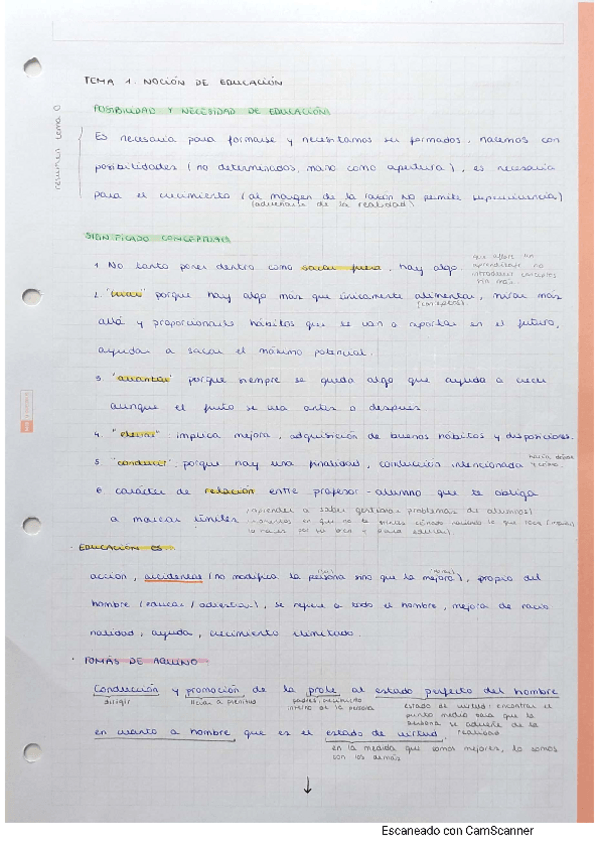 TEMA 1. NOCIÓN DE EDUCACIÓN
POSIBILIDAD Y NECESIDAD DE EDUCACIÓN
resumen tema 0
Es necesaria para formarse y necesitamos ser formados. nacemos con
posibilidades (no determinados, como apertura), es necesaria
para el crecimiento (al margen de la razón no permite supervivencia)
(adueñarse de la realidad)
SIGNIFICADO CONCEPTUAL
1. No tanto poner dentro como sacar fuera, hay algo
aprendizaje no
introducir conceptos
sin más
2. "criar" porque hay algo más que únicamente alimentar, mirar más
(conceptos)
allá y proporcionarle hábitos que se van a reportar en el futuro,
ayudar a sacar el máximo potencial.
3. "aumentar" porque siempre se queda algo que ayuda a crecer
aunque el fruto se vea antes o después
4. "elevar" implica mejora, adquisición de buenos hábitos y disposiciones.
5. "conducir" porque hay una finalidad, conducción intencionada
hacia dónde
y cómo
6. carácter de relación entre profesor-alumno que te obliga
a marcar límites
(aprender a saber gestionar problemas de alumnos)
EDUCACIÓN ES
acción, accidental (no modifica la persona sino que la mejora), propio del
hombre (educar / adiestrar), se refiere a todo el hombre, mejora de racio
nalidad, ayuda, crecimiento ilimitado.
TOMÁS DE AQUINO
Conducción y promoción de la prole al estado perfecto del hombre
dirigir
llevar a plenitud
estado de virtud: encontrar el
punto medio para que la
persona se adueñe de la
realidad
en cuanto a hombre, que es el estado de virtud.
en la medida que somos mejores, lo somos
con los demás
Escaneado con CamScanner